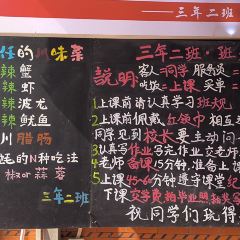 三年二班
任的川味菜
辣蟹
辣虾
辣波龙
辣鱿鱼
川腊肠
蚝的N种吃法
椒or蒜蓉
三年二班
三年二班·班
说明:客人=同学 服务员=
吃饭=上课 买单=
1上课前请认真学习班大规
2上课前佩戴红领巾相互
同学见到校长要主动问
3认真写作业写完作业交老师
4老师备课15分钟,准备上课
5上课45-6分钟遵守课堂纪
下课交学费拍毕业照拍
祝同学们玩得